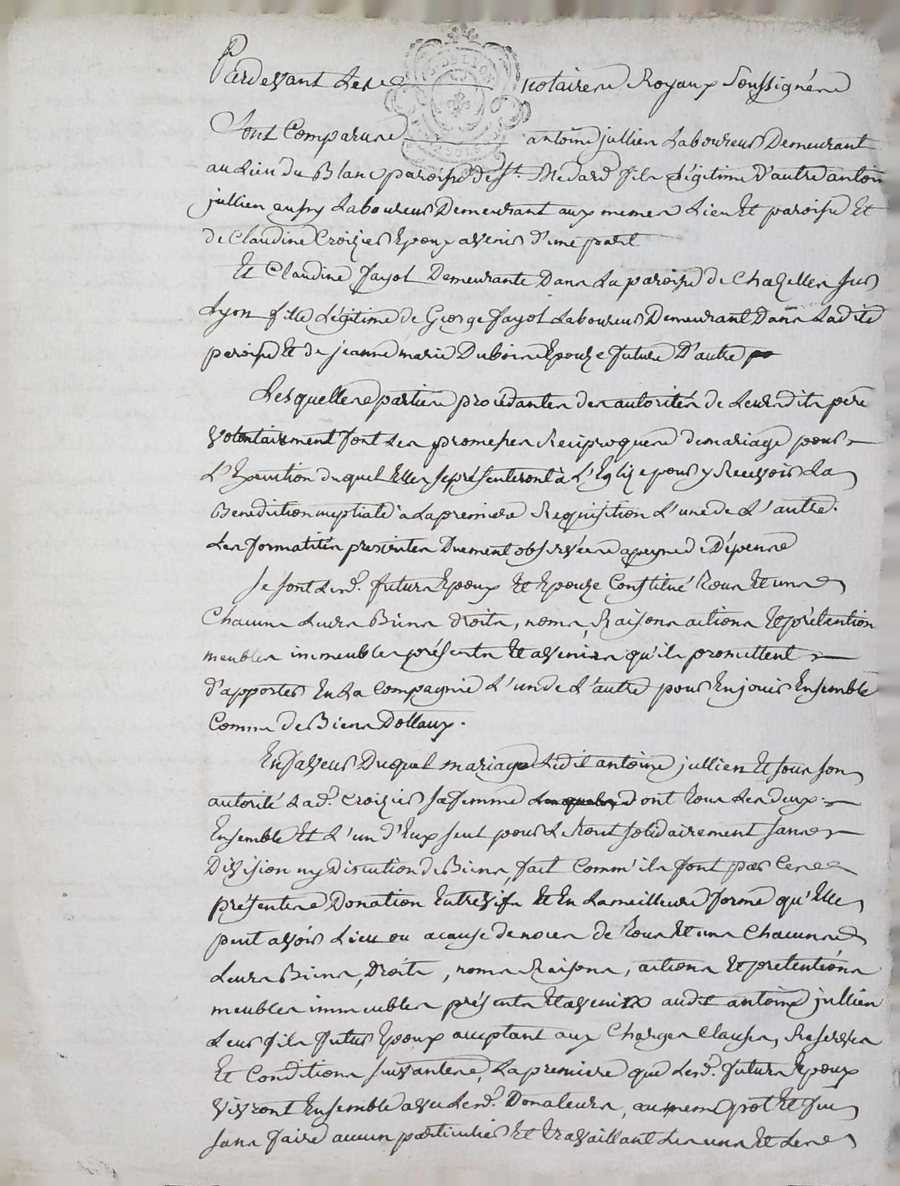 Pardevant Les notaires Royaux Soussignés
G. DE LYON
Sont Comparus antoine jullien Laboureur Demeurant
au Lieu du Blanc paroisse de St. Medard fils Légitime d'autre antoine
jullien aussy Laboureur Demeurant aux memes Lieu Et paroisse Et
de Claudine Croizier Epoux avenir d'une part
Et Claudine fayol Demeurante Dans La paroisse de Chazelles sur
Lyon fille Légitime de George fayol Laboureur Demeurant Dans Ladite
paroisse Et de jeanne marie Dubois Epouze future D'autre
Lesquelles parties procédantes des autorités de Leurs dits père
volontairement font Les promesses Reciproques de mariage pour
L'Execution duquel Elles se présenteront à L'Eglize pour y Recevoir La
Benediction nuptiale à La premiere Requisition L'une de L'autre.
Les formalités prescrites Duement observées a peyne de Dépenns
Se sont Lesd. futurs Epoux Et Epouze Constitué Tous Et uns
Chacuns Leurs Biens droits, noms, Raisons actions Et prétention
meubles immeubles présents Et avenirs qu'ils promettent
d'apporter En La Compagnie L'un de L'autre pour En jouir Ensemble
Comme de Biens Dottaux.
En faveur Duquel mariage Ledit antoine jullien Et sous son
autorité Lad. Croizier sa femme dont Tous Les deux
Ensemble Et L'un d'Eux seul pour Le Tout solidairement sans
Division ny Discution de Biens, fait Comm'ils font par Ces
présentes Donation Entrevifs Et En La meilleure forme qu'Elle
peut avoir Lieu ou a cause de noces de Tous Et uns Chacuns
Leurs Biens, Droits, noms Raisons, actions Et pretentions
meubles immeubles présents Et avenirs audit antoine jullien
Leur fils futur Epoux acceptant aux Charges Clauses, Reserves
Et Conditions suivantes, La premiere que Lesd. futurs Epoux
vivront Ensemble avec Lesd. Donateurs, au meme pot Et feu
sans faire aucun particulier Et travaillant Les uns Et Les